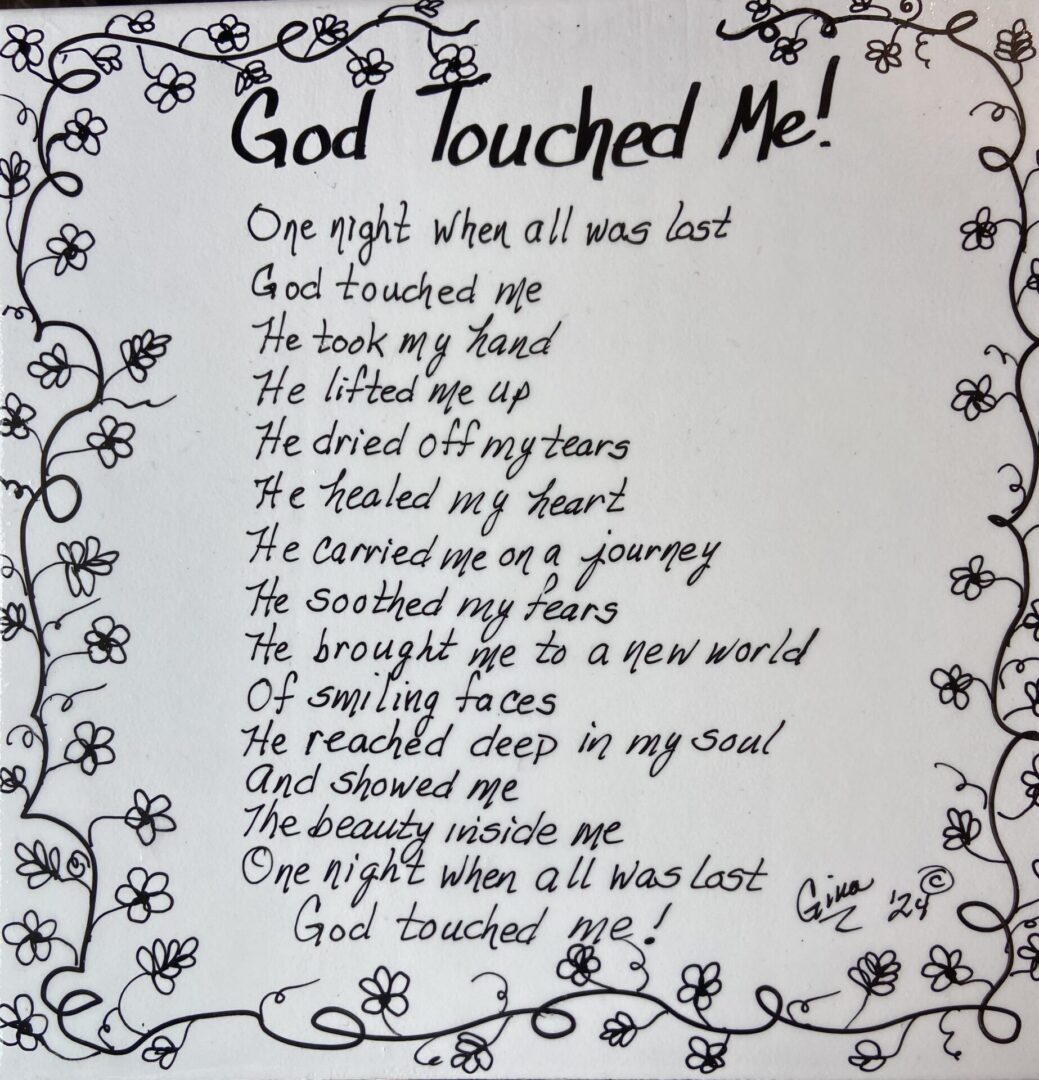 God Touched Me!
One night when all was lost
God touched me
He took my hand
He lifted me up
He dried off my tears
He healed my heart
He carried me on a journey
He soothed my fears
He brought me to a new world
Of smiling faces
He reached deep in my soul
And showed me
The beauty inside me
One night when all was lost
God touched me!
Gina '24 ©